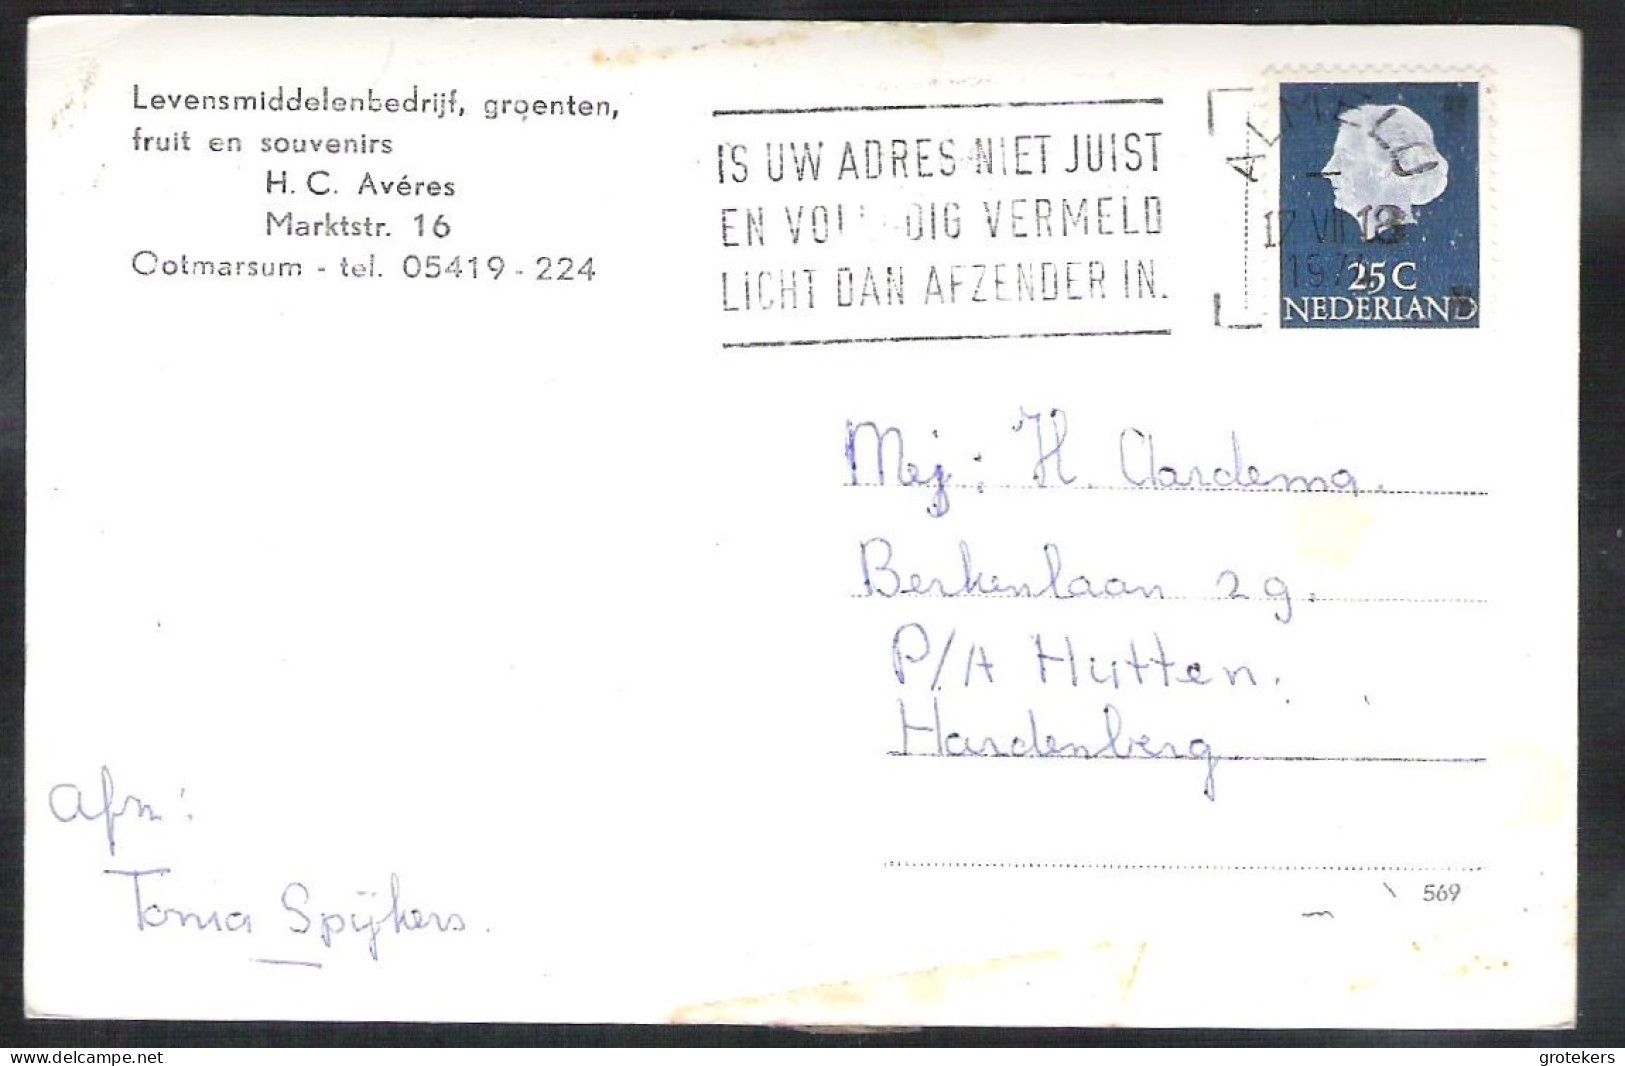 Levensmiddelenbedrijf, groenten,
fruit en souvenirs
H. C. Avéres
Marktstr. 16
Ootmarsum - tel. 05419 - 224
IS UW ADRES NIET JUIST
EN VOLLEDIG VERMELD
LICHT DAN AFZENDER IN.
ALMELO
17 VII 18
25 C
NEDERLAND
Mej; H. Aardema.
Berkenlaan 29.
P/A Hutten.
Hardenberg
Afz:
Tonia Spijkers.
569
grotekers @ Delcampe.net